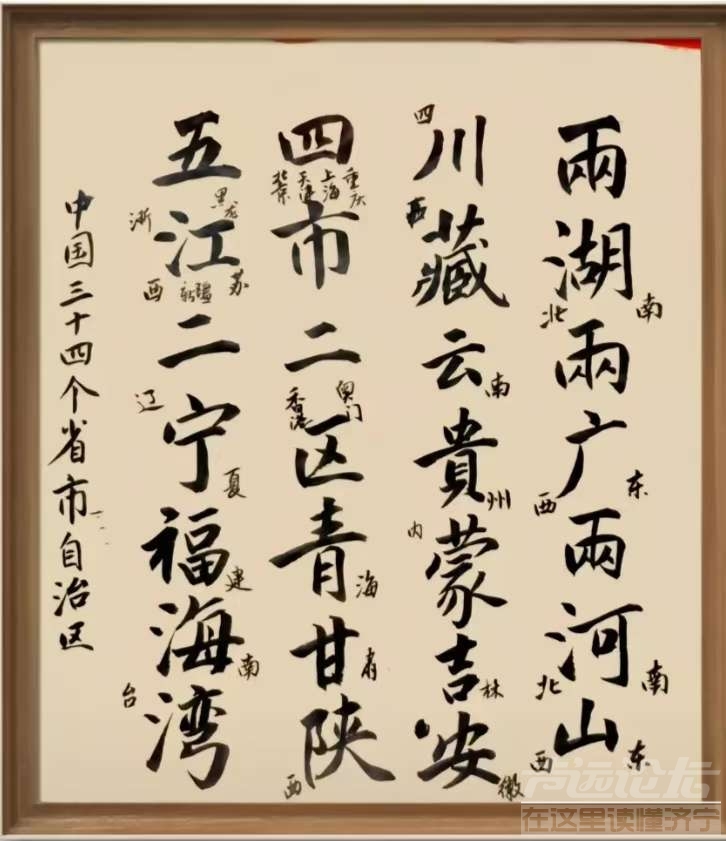 兩湖兩广兩河山
北
南
西
东
北
南
西
东
川藏云貴蒙吉安
四
西
南
州
内
林
徽
四市二区青甘陕
重庆
上海
天津
北京
澳门
香港
海
肃
西
五江二宁福海湾
黑龙
浙
苏
新疆
西
辽
夏
建
南
台
中国三十四个省市自治区
在这里读懂济宁